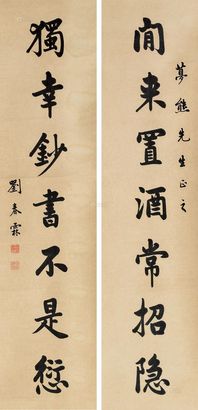 夢熊先生正之
閒来置酒常招隐
獨幸鈔書不是愆
劉春霖